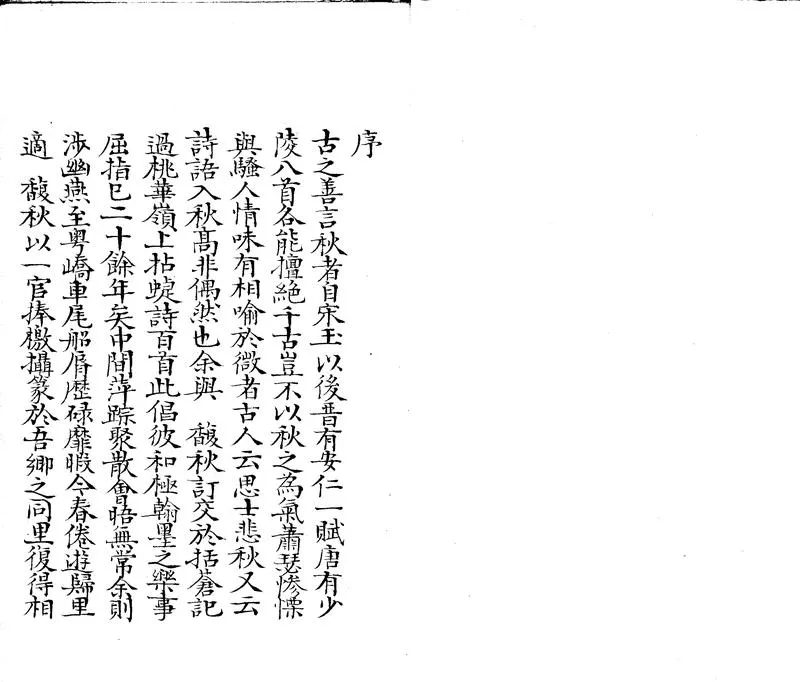 序
古之善言秋者自宋玉以後晋有安仁一賦唐有少
陵八首各能擅絕千古豈不以秋之為氣蕭瑟慘慄
與騷人情味有相喻於微者古人云思士悲秋又云
詩語入秋高非偶然也余與　馥秋訂交於括蒼記
過桃華嶺上拈蝶詩百首此倡彼和極翰墨之樂事
屈指已二十餘年矣中間萍踪聚散會晤無常余則
涉幽燕至粤嶠車尾船脣歴碌靡暇今春倦遊歸里
適　馥秋以一官捧檄攝篆於吾鄉之同里復得相